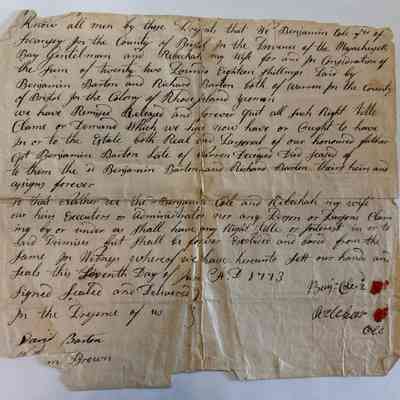 Know all men by these Presents that We Benjamin Cole of
Swanzey In the County of Bristol In the Province of the Massachusetts
Bay Gentelman and Rebekah my Wife for and In Consideration of
the Sum of Twenty two Pounds Eighteen Shillings Paid by
Benjamin Barton and Richard Barton both of Warren In the County
of Bristol In the Colony of Rhode Island yeoman
we have Remised Released and forever Quit all Such Right Title
Clame or Demand Which we has now have or Ought to have
in or to the Estate both Real and Personal of our honoured father
Cpt Benjamin Barton Late of Warren Decesed Died Seased of
to them the sd Benjamin Barton and Richard Barton their heirs and
asigns forever
So that neather we the Benjamin Cole and Rebekah my wife
our heirs Executors or Administrators nor any Person or Persons Claim
ing by or under us Shall have any Right Title or Interest in or to
said Premises but Shall be forever Excluded and bared from the
Same In Witness whereof we have hereunto Sett our hands and
Seals this Seventh Day of AD 1773
Signed Sealed and Delivered
In the Presence of us
Benjn Cole
Cole
David Barton
Brown